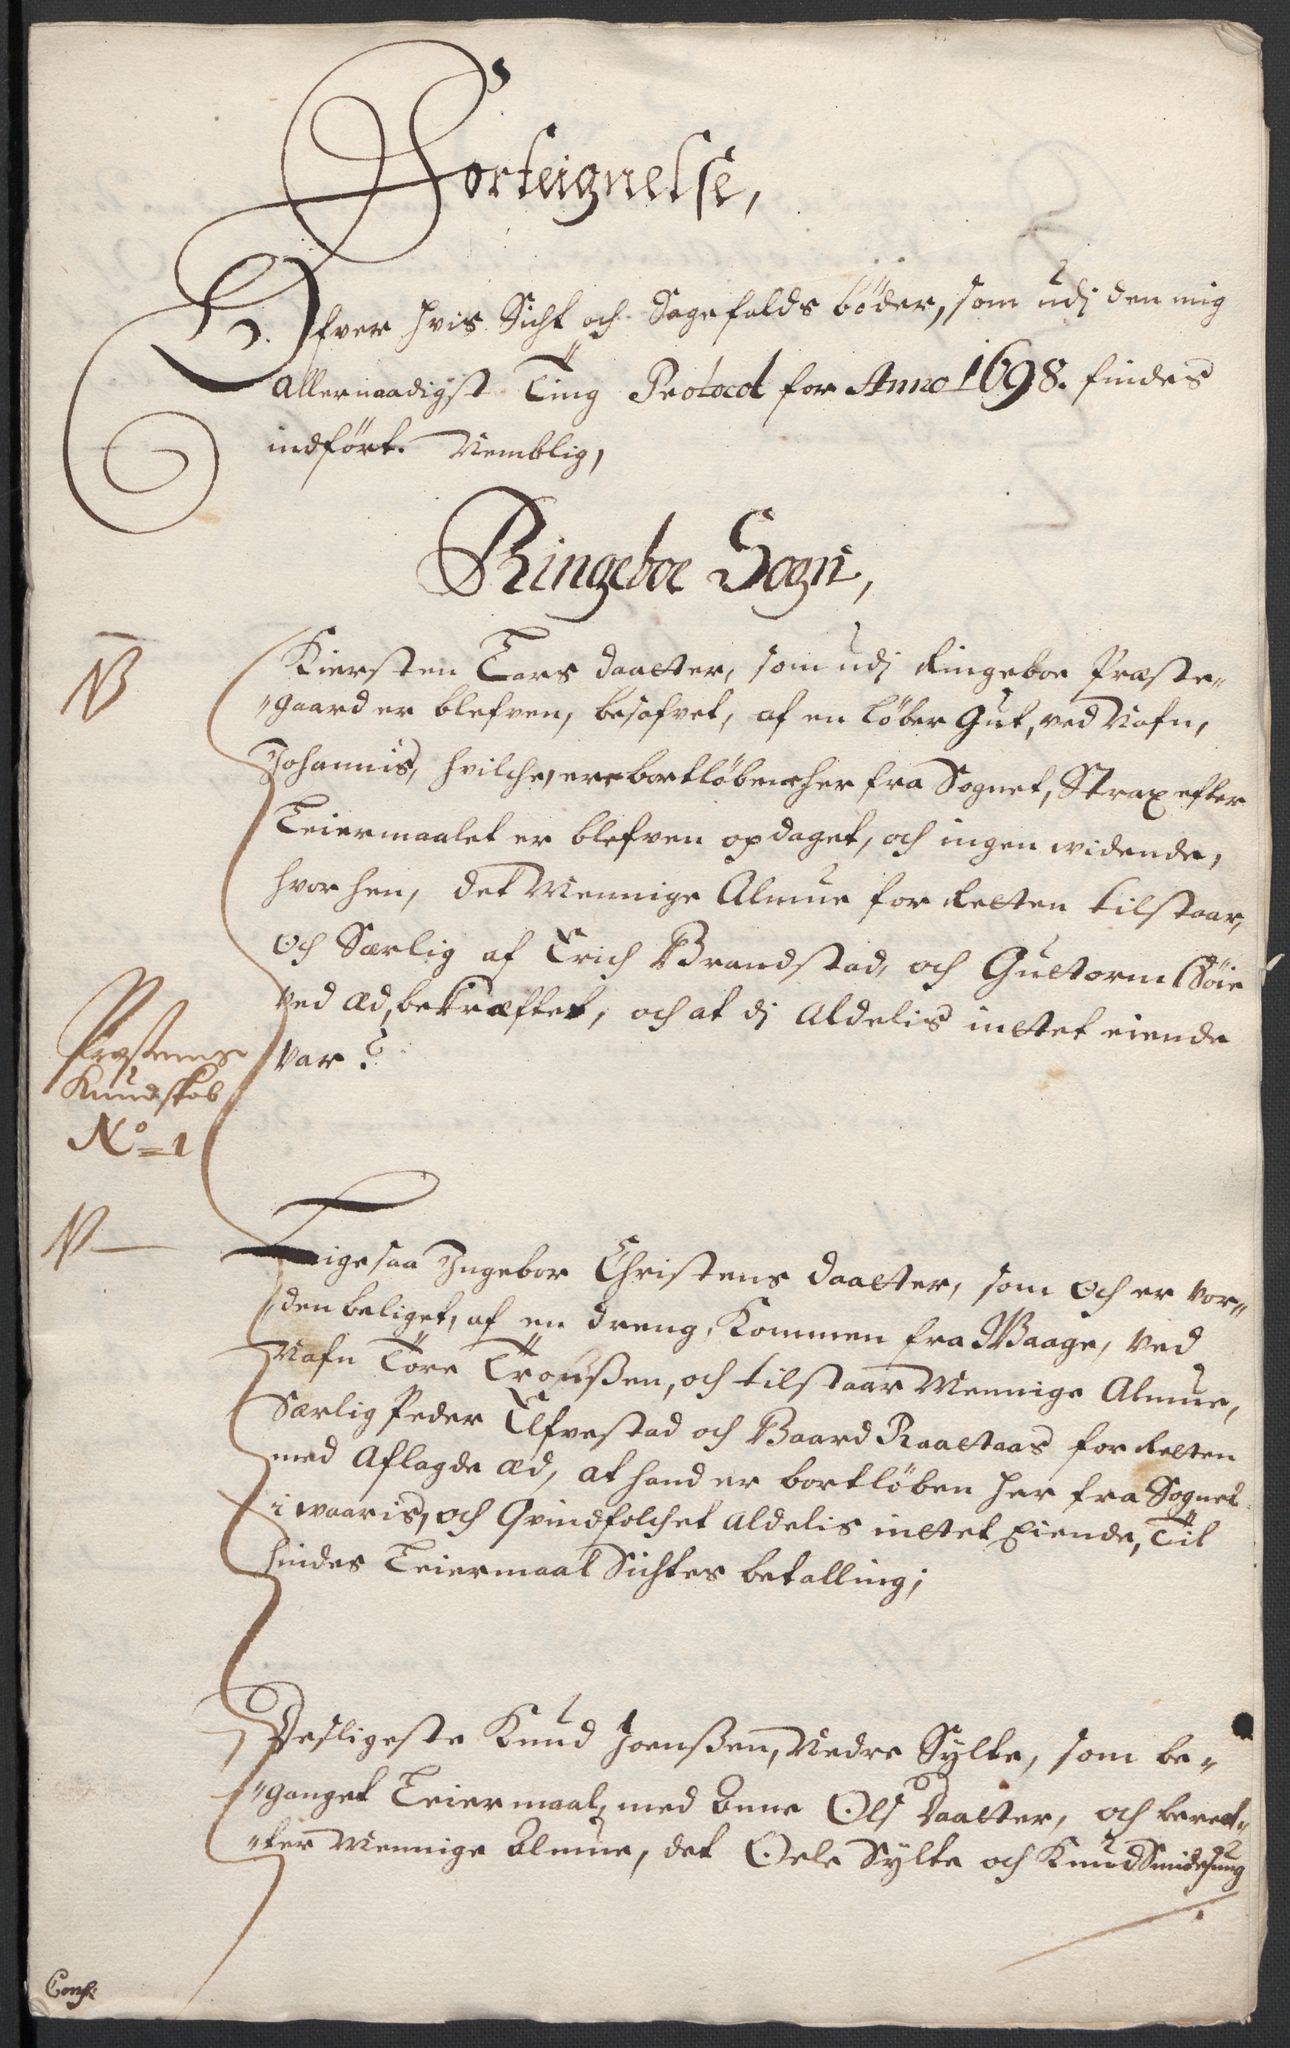 Forteignelse,
Ofver hvis Sicht och Sagefalds bøder, som udj den mig
Allernaadigst Ting Protocol for Anno 1698. findes
indført. Nemblig,
Ringeboe Sogn,
NB
Kiersten Lars daatter, som udj Ringeboe Præste„
„gaard er blefven, besofvet, af en løber Gut, ved Nafn,
Johannis, hvilche, ere bortløben her fra Sognet, Strax efter
Leiermaalet er blefven opdaget, och ingen widende,
hvor hen, det Mennige Almue for Retten tilstaar,
och Særlig af Erich Brandstad, och Guttorm
ved æd, bekræftet, och at dj Aldelis intet eiende
var?
Præstens
Kundskab
No = 1
N
Ligesaa Ingebor Christens daatter, som och er vor„
„den beliget, af en dreng, kommen fra Waage, ved
Nafn Tore, och tilstaar Mennige Almue,
Særlig Peder Elfvestad och Baard Raaetaas for Retten
med Aflagde æd, at hand er bortløben her fra Sognet
i waaris, och Qvindfolchet Aldelis intet Eiende, Til
hindes Leiermaal Sichtes betalling;
Desligeste Knud Joenßen, Nedre Sylte, som be„
„ganget Leiermaal, med Anne Ols Daatter, och beret„
„ter Mennige Almue, det Oele Sylte och Knud
Conf: